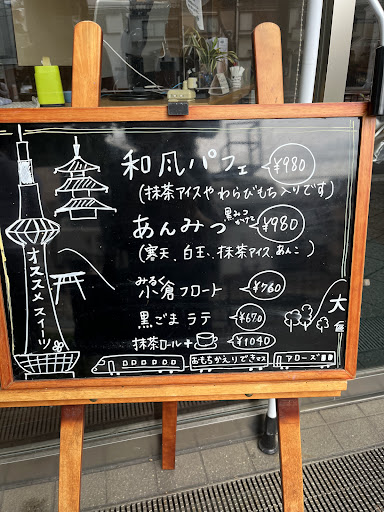 和風パフェ ¥980
(抹茶アイスやわらびもち入りです)
あんみつ 黒みつ ¥980
(寒天、白玉、抹茶アイス、あんこ)
みるく
小倉フロート ¥760
黒ごまラテ ¥670
抹茶ロール+ ¥1040
おもちかえりできマス
アローズ
オススメスイーツ
大